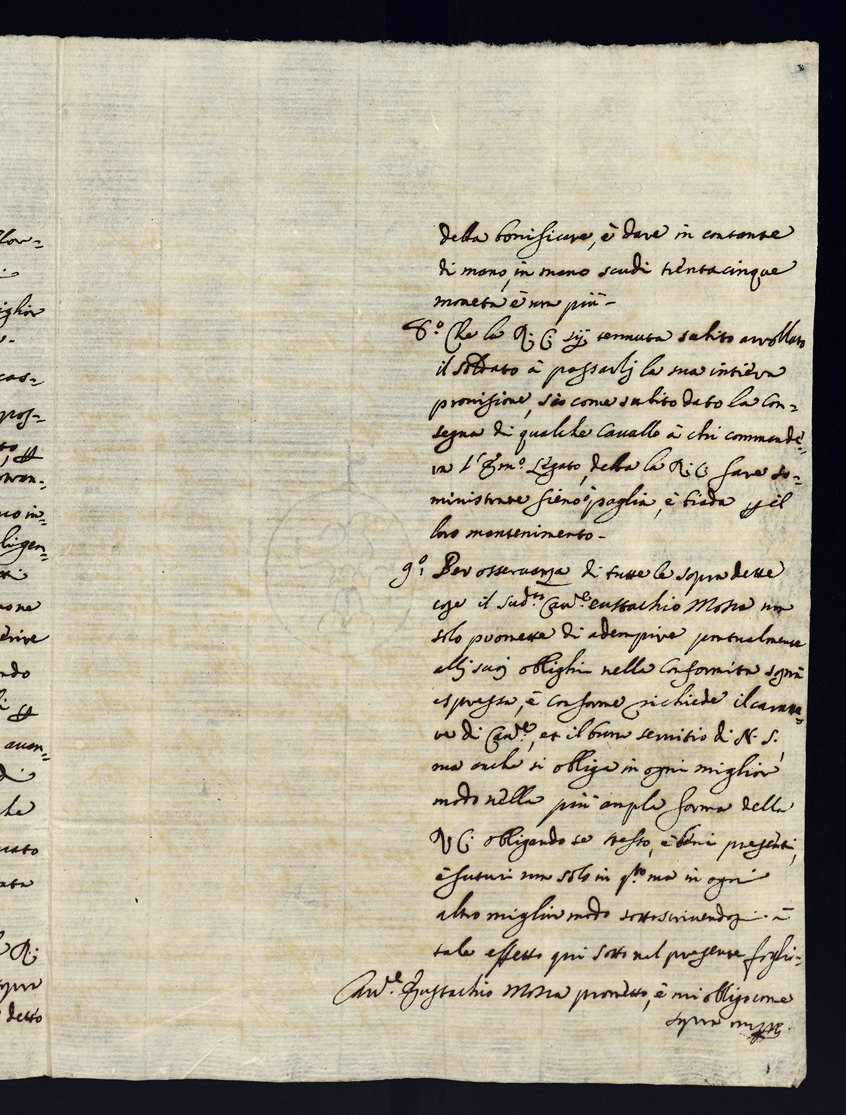 debba bonificare, è dare in contante
di mano, in mano scudi trentacinque
moneta è non più -
8.° Che la R. C. sij tennuta subito arrollato
il soldato à passarlj la sua intiera
provisione, sicome subito dato la con=
segna di qualche Cavallo à chi commande=
rà l'Em.° Legato, debba la R. C. fare so=
ministrare fieno, paglia, è biada p il
loro mantenimento -
9.° Per osservanza di tutte le sopradette
cose il sud.to Cav.re Eustachio non
solo promette di adempire pontualmente
allj suoj oblighi nella conformità sopra
espressa, è conforme richiede il caratte=
re di Cav.re, et il buon servitio di N. S.,
ma anche si obliga in ogni miglior
modo nella più ampla forma della
R. C. obligando se stesso, è beni presenti,
è futuri non solo in q.to ma in ogni
altro miglior modo sottoscrivendosi à
tale effetto qui sotto nel presente foglio=
Cav.re Eustachio prometto, è mi obligo come
sopra
lor=
iglior
cas=
pos=
in=
ligen=
mone
ndo
avan=
di
che
R.
sopra
detto